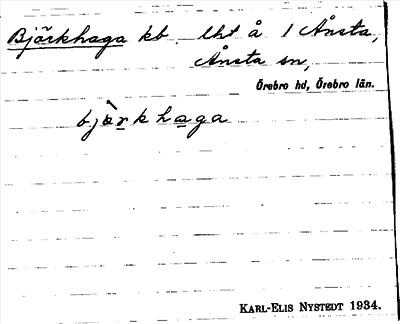 Björkhaga kb. Uht å 1 Ånsta,
Ånsta sn,
Örebro hd, Örebro län.
bjæ̀rkhaga
KARL-ELIS NYSTEDT 1934.